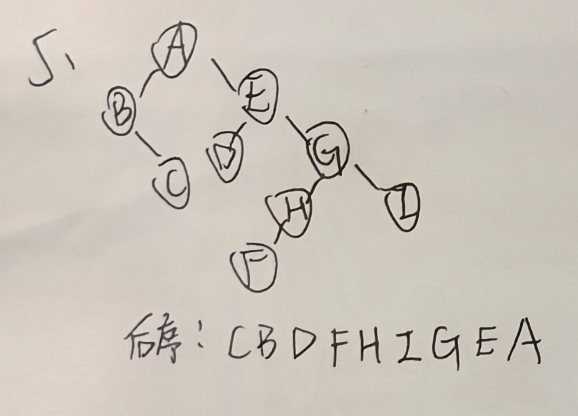 5、
A
B E
C D G
H I
F
后序：CBDFHIGEA